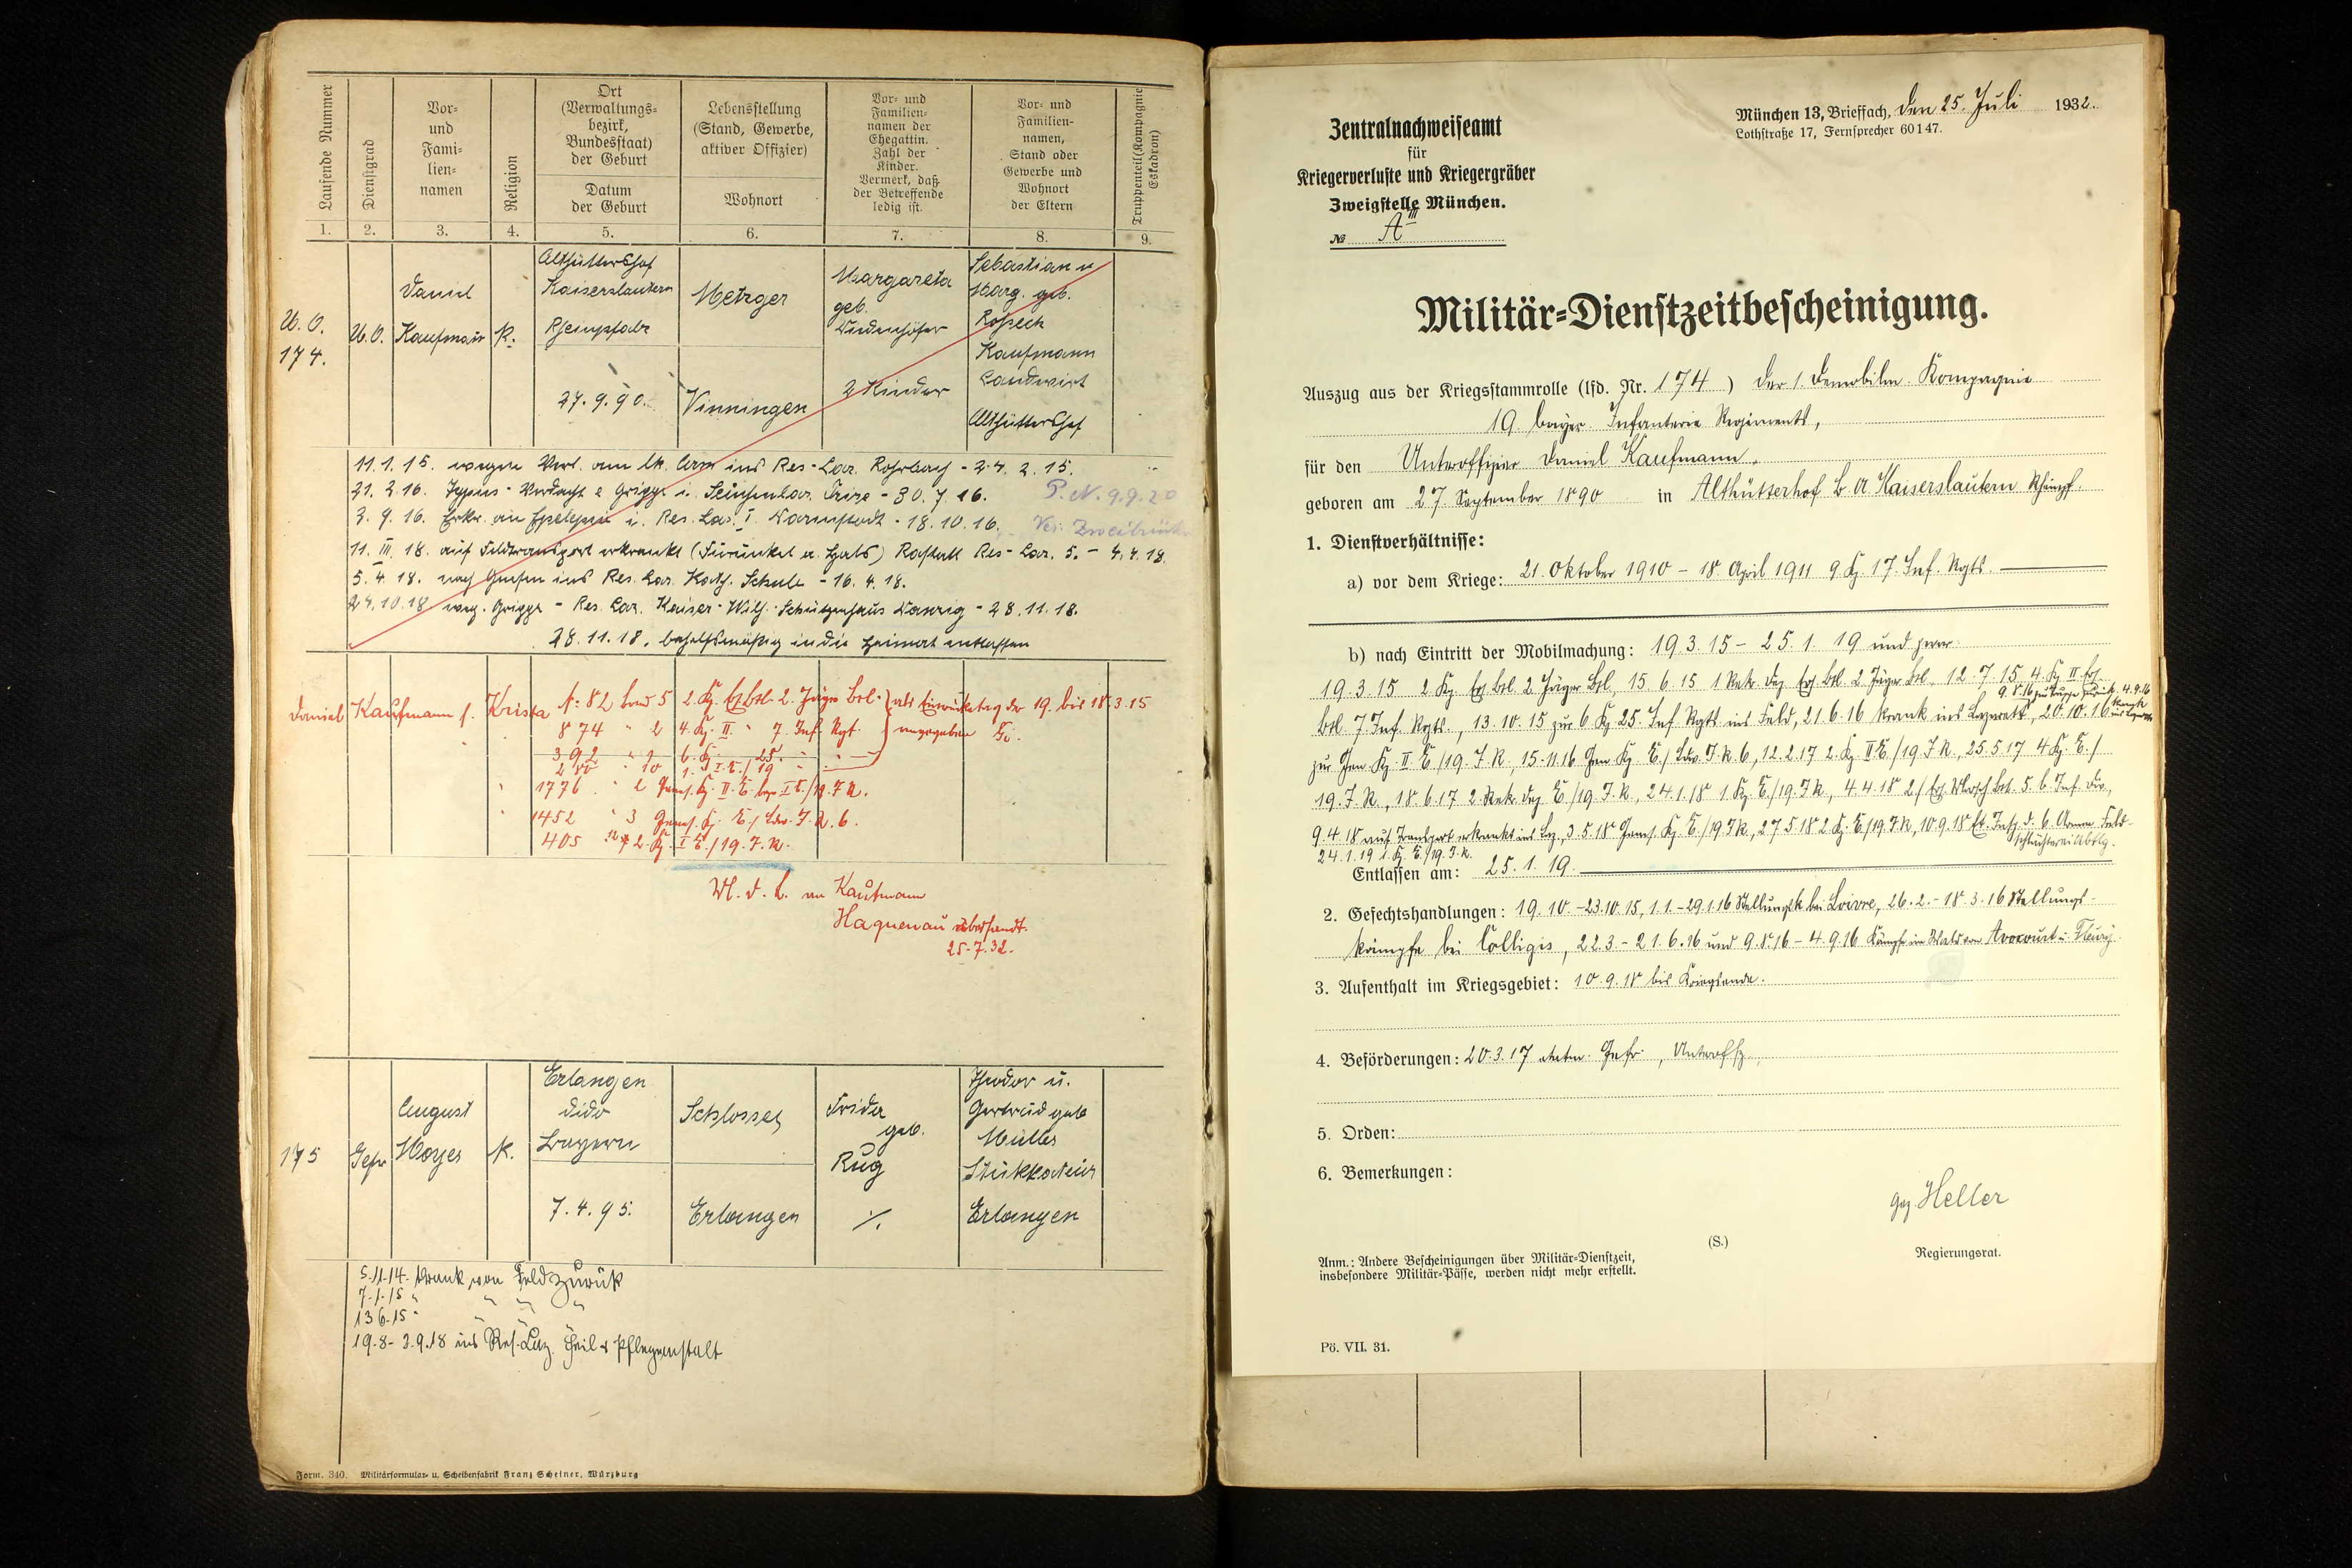 Laufende Nummer
Dienstgrad
Vor-
und
Fami-
lien-
namen
Religion
Ort
(Verwaltungs-
bezirk,
Bundesstaat)
der Geburt
Datum
der Geburt
Lebensstellung
(Stand, Gewerbe,
aktiver Offizier)
Wohnort
Vor- und
Familien-
namen der
Ehegattin.
Zahl der
Kinder.
Vermerk, daß
der Betreffende
ledig ist.
Vor- und
Familien-
namen,
Stand oder
Gewerbe und
Wohnort
der Eltern
Truppenteil (Kompagnie
Eskadron)
1. 2. 3. 4. 5. 6. 7. 8. 9.
U.O.
174.
U.O.
Daniel
Kaufmann
K.
Althütterhof
Kaiserslautern
Rheinpfalz
27.9.90.
Metzger
Vinningen
Margareta
geb.
2 Kinder
Sebastian u
Marg. geb.
Kaufmann
Landwirt
Althütterhof
11.1.15. wegen ins Res-Laz. Rohrbach - 24.2.15.
21.2.16. Typus-Verdacht Grippe i. Seuchenlaz. - 30.7.16. P.N. 9.9.20
3.9.16. Erkr. an Epilepsie i. Res. Laz. I. Darmstadt - 18.10.16. Zweibrücken
11.III.18. auf Feldtransport erkrankt (Furunkel a. Hals) Rastatt Res-Laz. 5. - 4.4.18.
5.4.18. nach Gnesen ins Res. Laz. Kath. Schule - 16.4.18.
24.10.18 weg. Grippe - Res. Laz. Kaiser-Wilh. Schützenhaus Danzig - 28.11.18.
28.11.18. behelfsmäßig in die Heimat entlassen
Daniel Kaufmann s. Krista N: 82 Band 5 2. Kp. Ers. btl. 2. Jäger Btl. als 19. bis 18.3.15
874 " 2 4. Kp. II. " 7 Inf. Rgt. angegeben
392 " 7 6. Kp. 25. "
" 10 1. " I. E./19 "
1776 " 2 Genes. Kp. II. E. I E./19. J.R.
1452 " 3 Genes. Kp. E./Ldw. J.R. 6.
405 2. Kp. I E./19. J.R.
M.d.B. an Kaufmann
Haguenau übersandt.
25.7.32.
175
Gefr
August
Moyes
K.
Erlangen
dido
Bayern
7.4.95.
Schlosser
Erlangen
Frida
geb.
Rug
./.
Theodor u.
Gertrud geb
Müller
Stukkateur
Erlangen
5.11.14. krank von Feld zurück
7.1.15 " " " "
13.6.15 " " " "
19.8-3.9.18 ins Res.-Laz. Heil & Pflegeanstalt
Form. 340. Militärformular- u. Scheibenfabrik Franz Scheiner, Würzburg
Zentralnachweiseamt
für
Kriegerverluste und Kriegergräber
Zweigstelle München.
№ A III
München 13, Brieffach, den 25. Juli 1932.
Lothstraße 17, Fernsprecher 60147.
Militär-Dienstzeitbescheinigung.
Auszug aus der Kriegsstammrolle (lfd. Nr. 174) der 1. Demobilm. Kompagnie
19. bayer. Infanterie Regiments,
für den Unteroffizier Daniel Kaufmann.
geboren am 27 September 1890 in Althütterhof b. A Kaiserslautern Rheinpf.
1. Dienstverhältnisse:
a) vor dem Kriege: 21. Oktober 1910 – 18. April 1911 9. K. 17. Inf. Rgts.
b) nach Eintritt der Mobilmachung: 19.3.15 – 25.1.19 und zwar:
19.3.15 2 Kp. Ers. Btl. 2 Jäger Btl, 15.6.15 1 Rekr. Dep. Ers. Btl. 2 Jäger Btl. 12.7.15 4. Kp. II. Ers.
9.8.16 zur Truppe zurück, 4.9.16
btl. 7 Inf. Rgts., 13.10.15 zur 6. Kp. 25. Inf. Rgts. ins Feld, 21.6.16 krank ins Lazarett, 20.10.16 krank ins Lazarett
zur Gen. Kp. II. E./19. J.R., 15.11.16 Gen Kp. E./Ldw. J.R. 6, 12.2.17 2. Kp. II E./19. J.R., 25.5.17 4 Kp. E./
19. J.R., 18.6.17 2 Rekr. Dep. E./19. J.R., 24.1.18 1. Kp. E./19. J.R., 4.4.18 5. b. Inf. Div.,
9.4.18 auf Transport erkrankt ins Laz, 3.5.18 Genes. Kp. E./19. J.R., 27.5.18 2. Kp. E./19. J.R, 10.9.18 d. 6. Armee Feld-
schlächtereiabtlg.
24.1.19 1. Kp. E./19. J.R.
Entlassen am: 25.1.19.
2. Gefechtshandlungen: 19.10.-23.10.15, 1.1.-29.1.16 Stellungsk bei Loivre, 26.2.-18.3.16 Stellungs-
kämpfe bei Colligis, 22.3 - 21.6.16 und 9.8.16 - 4.9.16 Kämpfe im Wald von Avocourt u. Fleury
3. Aufenthalt im Kriegsgebiet: 10.9.18 bis Kriegsende.
4. Beförderungen: 20.3.17 Gefr., Unteroffz.,
5. Orden:
6. Bemerkungen:
gez. Heller
(S.)
Regierungsrat.
Anm.: Andere Bescheinigungen über Militär-Dienstzeit,
insbesondere Militär-Pässe, werden nicht mehr erstellt.
Pö. VII. 31.